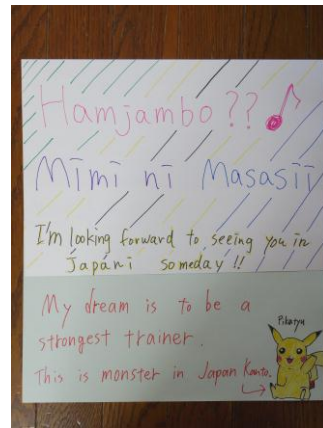 Hamjambo??
Mimi ni Masasii
I'm looking forward to seeing you in
Japani someday!!
My dream is to be a
strongest trainer.
Pikatyu
This is monster in Japan Kanto.